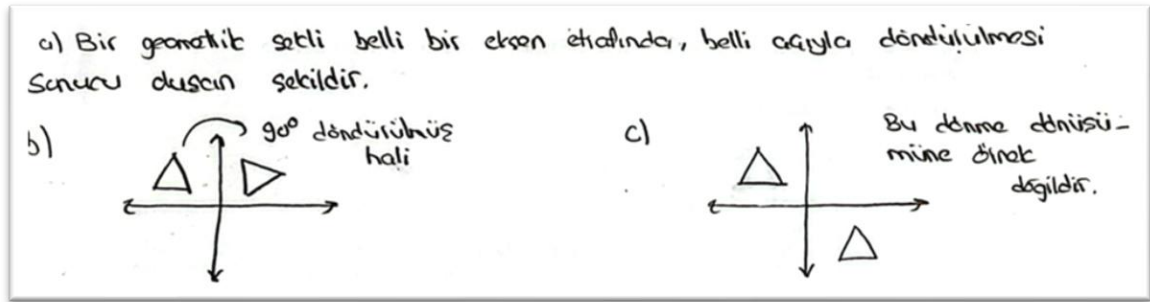 a) Bir geometrik şekli belli bir eksen etrafında, belli açıyla döndürülmesi
sonucu oluşan şekildir.
b)
90° döndürülmüş
hali
c)
Bu dönme dönüşü-
müne örnek
değildir.